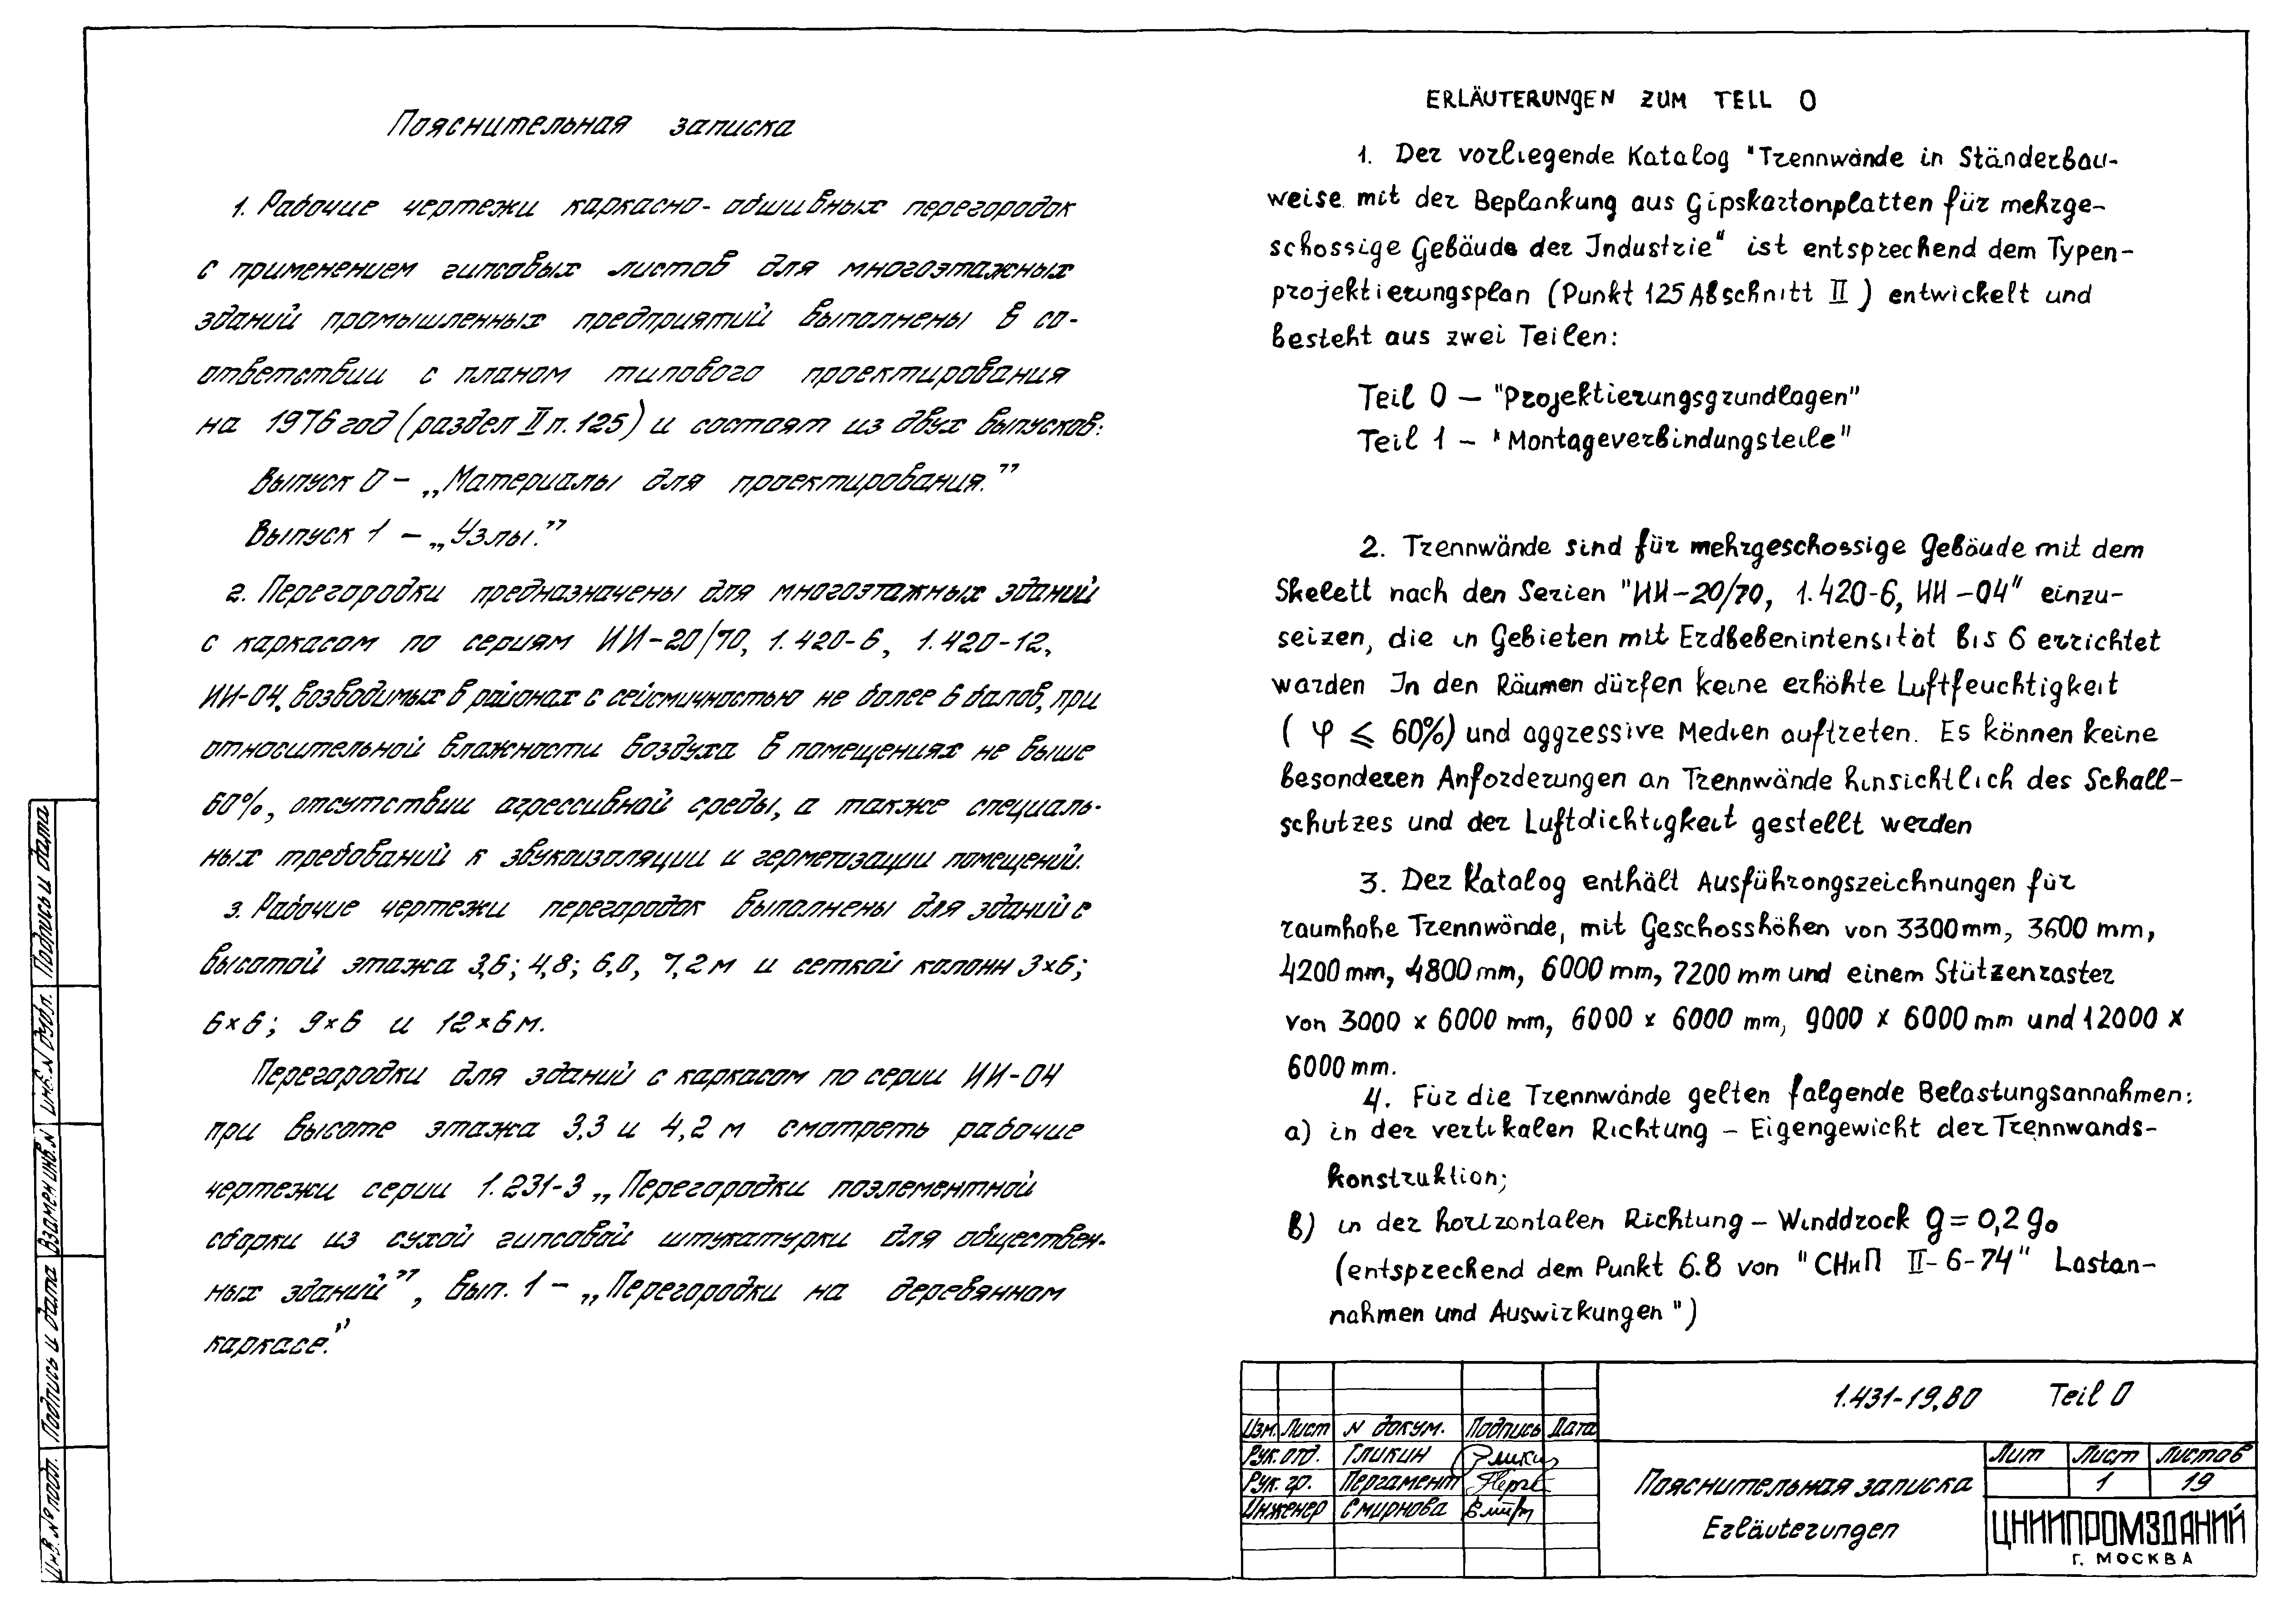 Пояснительная записка
1. Рабочие чертежи каркасно-обшивных перегородок
с применением гипсовых листов для многоэтажных
зданий промышленных предприятий выполнены в со-
ответствии с планом типового проектирования
на 1976 год (раздел II п. 125) и состоят из двух выпусков:
Выпуск 0 – „Материалы для проектирования.”
Выпуск 1 – „Узлы.”
2. Перегородки предназначены для многоэтажных зданий
с каркасом по сериям ИИ-20/70, 1.420-6, 1.420-12,
ИИ-04, возводимых в районах с сейсмичностью не более 6 балов, при
относительной влажности воздуха в помещениях не выше
60%, отсутствии агрессивной среды, а также специаль-
ных требований к звукоизоляции и герметизации помещений.
3. Рабочие чертежи перегородок выполнены для зданий с
высотой этажа 3,6; 4,8; 6,0, 7,2 м и сеткой колонн 3×6;
6×6; 9×6 и 12×6 м.
Перегородки для зданий с каркасом по серии ИИ-04
при высоте этажа 3,3 и 4,2 м смотреть рабочие
чертежи серии 1.231-3 „Перегородки поэлементной
сборки из сухой гипсовой штукатурки для обществен-
ных зданий”, Вып. 1 – „Перегородки на деревянном
каркасе.”
ERLÄUTERUNGEN ZUM TEIL 0
1. Der vorliegende Katalog "Trennwände in Ständerbau-
weise mit der Beplankung aus Gipskartonplatten für mehrge-
schossige Gebäude der Industrie" ist entsprechend dem Typen-
projektierungsplan (Punkt 125 Abschnitt II) entwickelt und
besteht aus zwei Teilen:
Teil 0 – "Projektierungsgrundlagen"
Teil 1 – "Montageverbindungsteile"
2. Trennwände sind für mehrgeschossige Gebäude mit dem
Skelett nach den Serien "ИИ-20/70, 1.420-6, ИИ-04" einzu-
seizen, die in Gebieten mit Erdbebenintensität bis 6 errichtet
warden In den Räumen dürfen keine erhöhte Luftfeuchtigkeit
( φ ⩽ 60%) und aggressive Medien auftreten. Es können keine
besonderen Anforderungen an Trennwände hinsichtlich des Schall-
schutzes und der Luftdichtigkeit gestellt werden
3. Der Katalog enthält Ausführongszeichnungen für
raumhohe Trennwände, mit Geschosshöhen von 3300 mm, 3600 mm,
4200 mm, 4800 mm, 6000 mm, 7200 mm und einem Stützenraster
von 3000 × 6000 mm, 6000 × 6000 mm, 9000 × 6000 mm und 12000 ×
6000 mm.
4. Für die Trennwände gelten folgende Belastungsannahmen:
a) in der vertikalen Richtung – Eigengewicht der Trennwands-
konstruktion;
b) in der horizontalen Richtung – Winddrock g = 0,2 g₀
(entsprechend dem Punkt 6.8 von "СНиП II-6-74" Lastan-
nahmen und Auswirkungen")
1.431-19.80 Teil 0
Изм. Лист N докум. Подпись Дата
Рук. отд. Гликин
Рук. гр. Пергамент
Инженер Смирнова
Пояснительная записка
Erläuterungen
Лит Лист Листов
1 19
ЦНИИПРОМЗДАНИЙ
Г. МОСКВА
Инв. № подл. Подпись и дата Взамен инв. N Инв. N дубл. Подпись и дата